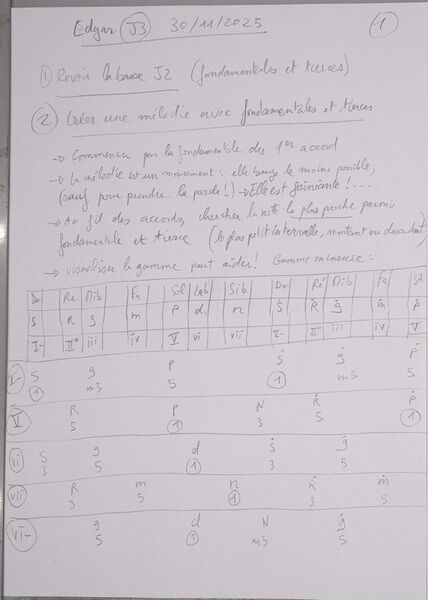 Edgar J3 30/11/2025 1
① Revoir la basse J2 (fondamentales et tierces)
② Créer une mélodie avec fondamentales et tierces
→ Commencer par la fondamentale du 1er accord
→ La mélodie est un mouvement : elle bouge le moins possible,
(sauf pour prendre la parole !) → Elle est fainiante ! ...
→ Au fil des accords, chercher la note la plus proche parmi
fondamentale et tierce (le plus petit intervalle, montant ou descendant)
→ visualiser la gamme peut aider ! Gamme mineure :
Do Re Mib Fa Sol Lab Sib Do Re Mib Fa Sol
S R g m P d n Ṡ Ṙ ġ ṁ Ṗ
I- II° iii iv V vi vii I- II° iii iv V
I- S g P Ṡ ġ Ṗ
① m3 5 ① m3 5
V R P N Ṙ Ṗ
5 ① 3 5 ①
vi S g d Ṡ ġ
3 5 ① 3 5
vii R m n Ṙ ṁ
3 5 ① 3 5
vi- g d N ġ
5 ① m3 5